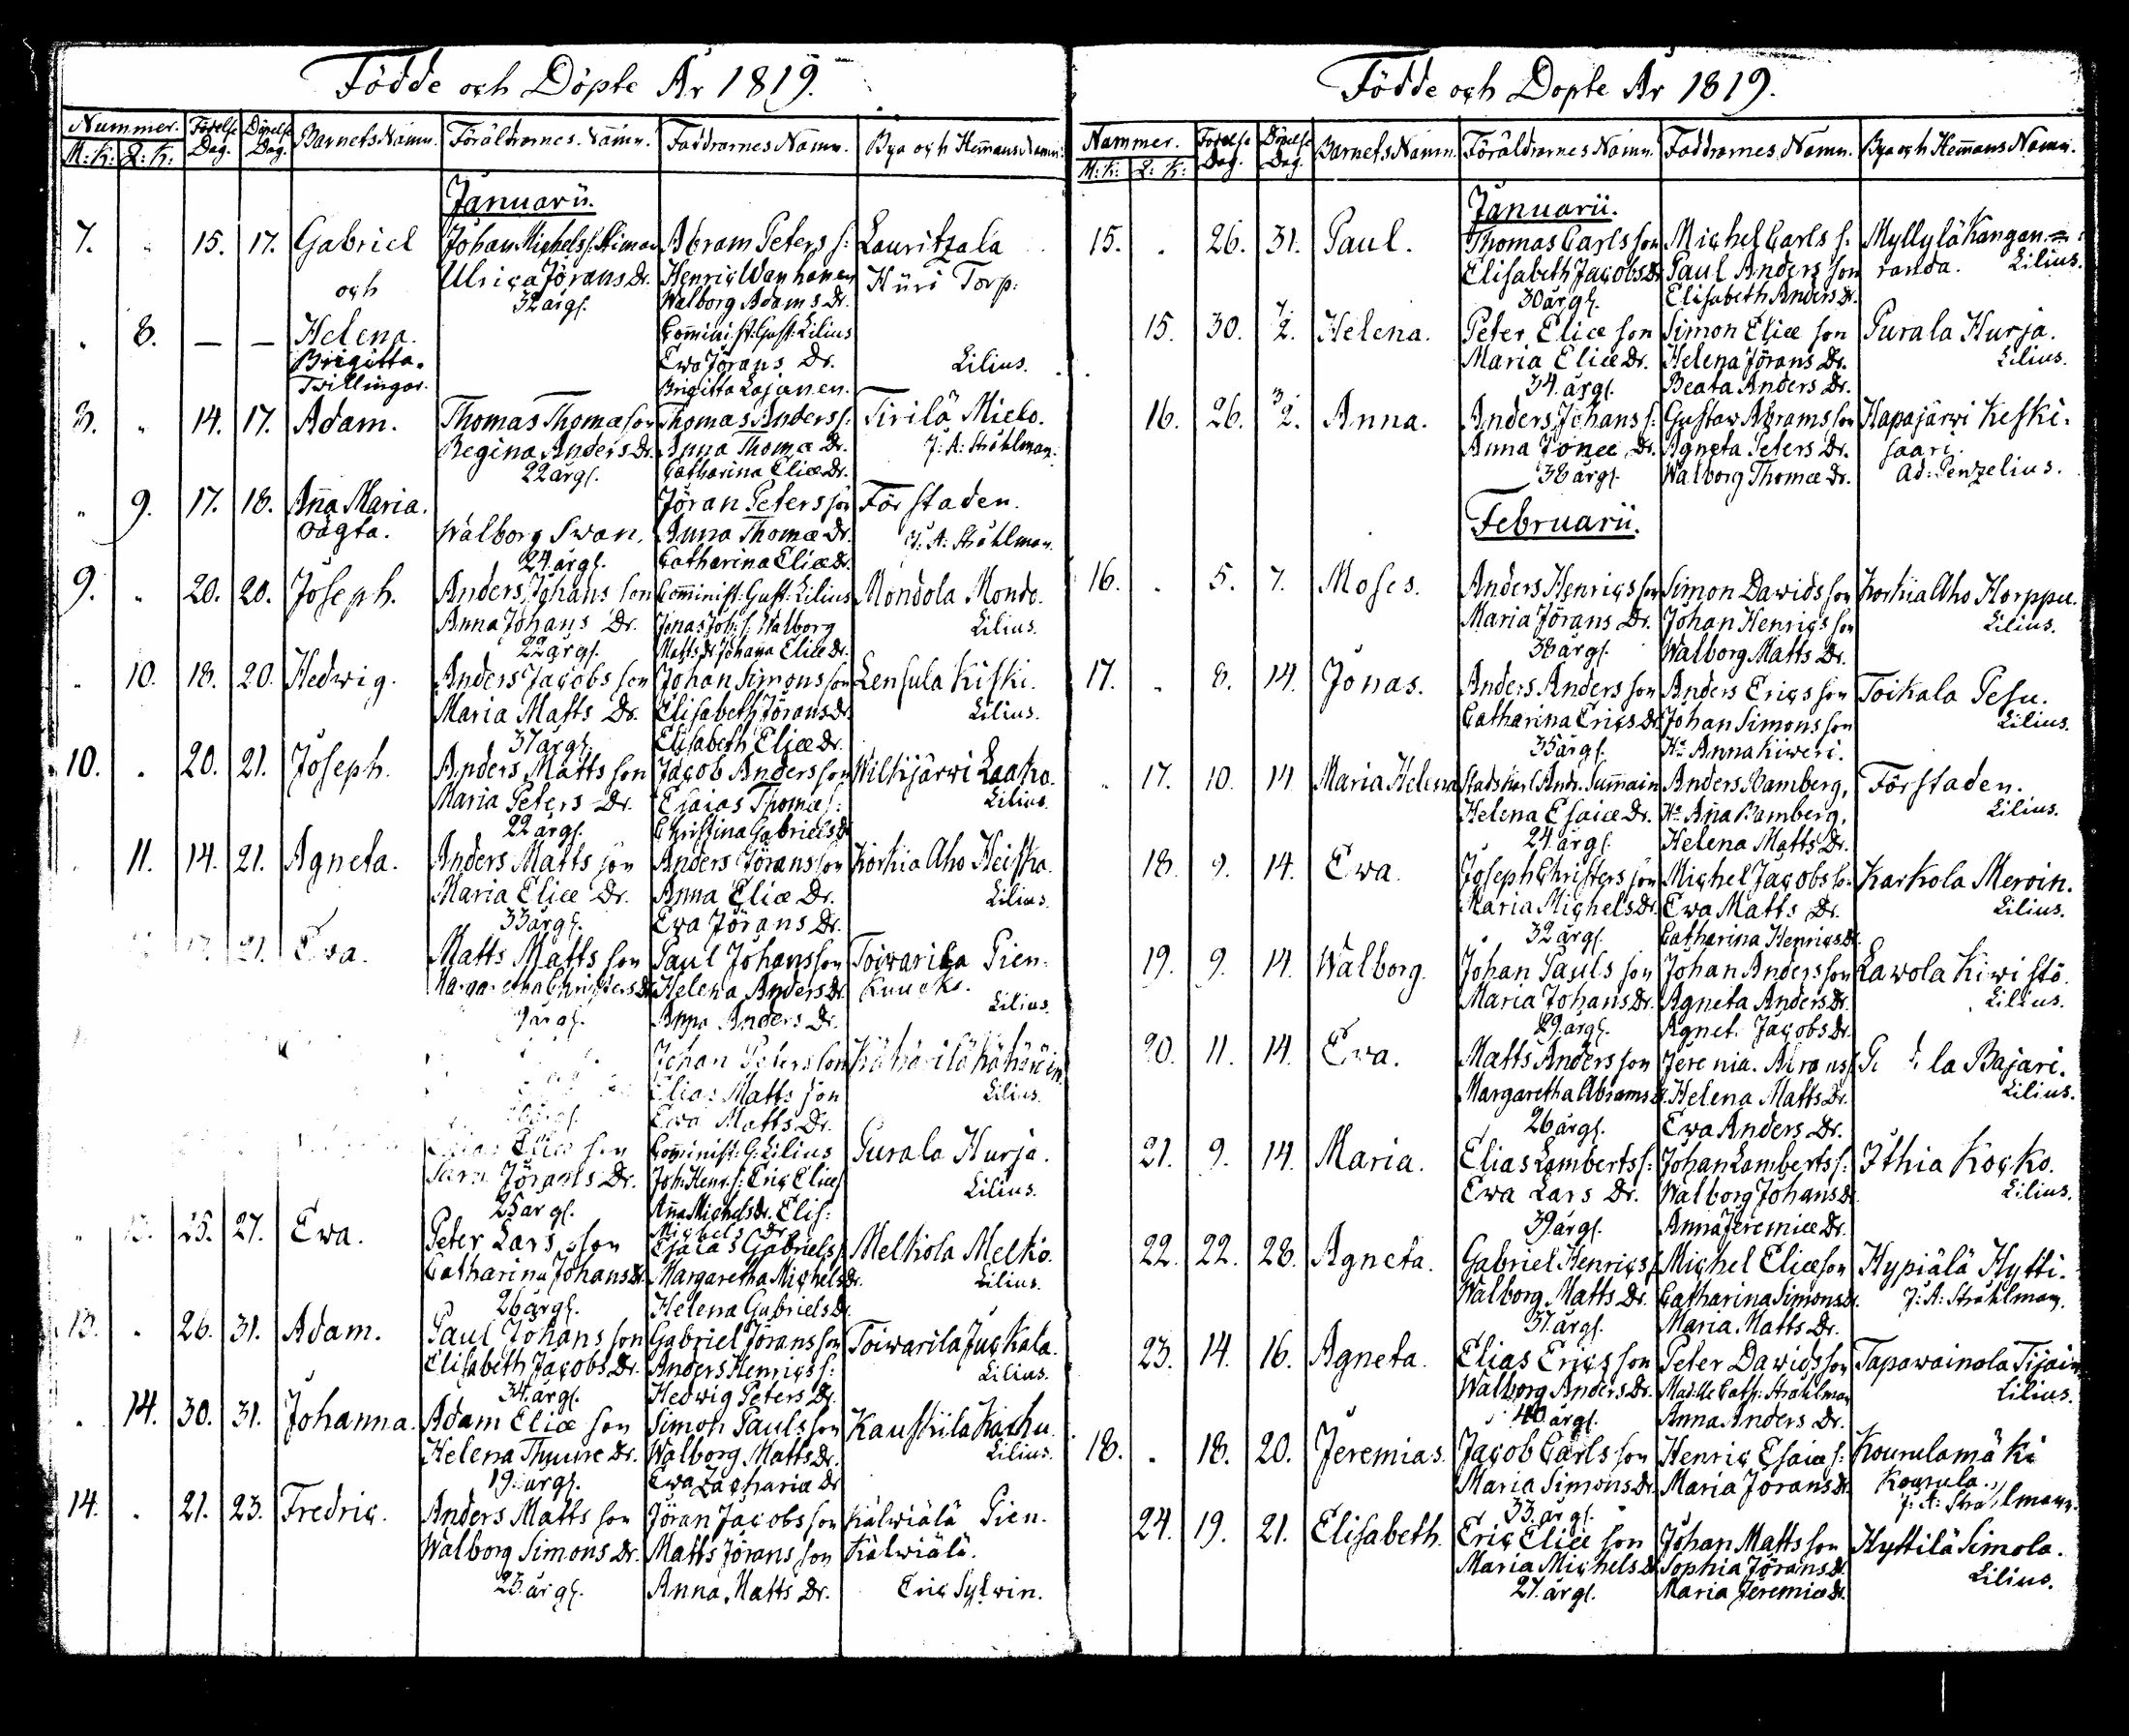 Födde och Döpte År 1819.
Nummer. Födelse Dag. Döpelse Dag. Barnets Namn. Föräldrarnes Namn. Faddrarnes Namn. Bya och Hemmans Namn.
M: K: Q: K:
Januarii.
7. " 15. 17. Gabriel Johan Michels s: Abram Peters s: Lauritzala
och Ulrica Jörans Dr. Henric Wanhanen Hiiri Torp:
32 årgs. Walborg Adams Dr.
" 8. — — Helena. Comminist: Gust: Lilius
Brigitta. Ewa Jörans Dr. Lilius.
Tvillingar. Brigitta Lajanen.
8. " 14. 17. Adam. Thomas Thomæ son Thomas Anders s: Tirilä Mielo.
Regina Anders Dr. Anna Thomæ Dr. J: A: Ståhlman.
22 årgs. Catharina Eliæ Dr.
" 9. 17. 18. Anna Maria. Jöran Peters son Förstaden.
oägta. Walborg Swan. Anna Thomæ Dr. J: A: Ståhlman.
24. årgs. Catharina Eliæ Dr.
9. " 20. 20. Joseph. Anders Johans son Comminist: Gust: Lilius Mondola Mondo.
Anna Johans Dr. Jonas Joh: s: Walborg Lilius.
22 årgs. Matts Dr Johana Eliæ Dr.
" 10. 18. 20. Hedwig. Anders Jacobs son Johan Simons son Lensula Kiski.
Maria Matts Dr. Elisabeth Jörans Dr. Lilius.
37 årgs. Elisabeth Eliæ Dr.
10. " 20. 21. Joseph. Anders Matts son Jacob Anders son Wilkjärwi Laako.
Maria Peters Dr. Esaias Thomæ s: Lilius.
22 årgs. Christina Gabriels Dr
" 11. 14. 21. Agneta. Anders Matts son Anders Jörans son Korkia Aho Heiska.
Maria Eliæ Dr. Anna Eliæ Dr. Lilius.
33 årgs. Ewa Jörans Dr.
21. Ewa. Matts Matts son Paul Johans son Toiwarila Pien.
Margaretha Christers Dr Helena Anders Dr. Lilius.
årgs. Anna Anders Dr.
Johan Peters son
Elias Matts son Lilius.
Ewa Matts Dr.
Comminist: G: Lilius Purala Hurja.
Jörans Dr. Joh: Henr: s: Eric Eliæ s Lilius.
25 årgs. Anna Michels Dr. Elis:
Michels Dr.
" 25. 27. Ewa. Peter Lars son Esaias Gabriels s Melkola Melko.
Catharina Johans Dr. Margaretha Michels Dr. Lilius.
26 årgs. Helena Gabriels Dr.
13. " 26. 31. Adam. Paul Johans son Gabriel Jörans son Toiwarila Juckala.
Elisabeth Jacobs Dr. Anders Henrics s: Lilius.
34. årgs. Hedwig Peters Dr.
" 14. 30. 31. Johanna. Adam Eliæ son Simon Pauls son Kauskila Karhu.
Helena Thuure Dr. Walborg Matts Dr. Lilius.
19. årgs. Ewa Zachariæ Dr
14. " 21. 23. Fredric. Anders Matts son Jöran Jacobs son Kälwiälä Pien.
Walborg Simons Dr. Matts Jörans son Kälwiälä.
23. årgs. Anna Matts Dr. Eric Sylwin.
Födde och Döpte År 1819.
Nummer. Födelse Dag. Döpelse Dag. Barnets Namn. Föräldrarnes Namn. Faddrarnes Namn. Bya och Hemmans Namn.
M: K: Q: K:
Januarii.
15. " 26. 31. Paul. Thomas Carls son Michel Carls s. Myllylä Kangan=
Elisabeth Jacobs Dr Paul Anders son randa. Lilius.
30 årgs. Elisabeth Anders Dr.
15. 30. 7/2. Helena. Peter Eliæ son Simon Eliæ son Purala Hurja.
Maria Eliæ Dr. Helena Jörans Dr. Lilius.
34. årgs. Beata Anders Dr.
16. 26. 3/2. Anna. Anders Johans s: Gustav Abrams son Hapajärwi Keski=
Anna Jonee Dr. Agneta Peters Dr. saari.
38 årgs. Walborg Thomæ Dr. Ad: Penzelius.
Februarii.
16. " 5. 7. Moses. Anders Henrics son Simon Dawids son Korkia Aho Horppu.
Maria Jörans Dr. Johan Henrics son Lilius.
38 årgs. Walborg Matts Dr.
17. " 8. 14. Jonas. Anders Anders son Anders Erics son Toikala Pesu.
Catharina Erics Dr. Johan Simons son Lilius.
35 årgs. Ha Anna Kiweri.
" 17. 10. 14 Maria Helena Stadskarl Andr. Summain Anders Bamberg, Förstaden.
Helena Esaiæ Dr. Ha Anna Bamberg, Lilius.
24. årgs. Helena Matts Dr.
18. 9. 14. Ewa. Joseph Christers son Michel Jacobs son Karkola Meroin.
Maria Michels Dr. Ewa Matts Dr. Lilius.
32 årgs. Catharina Henrics Dr.
19. 9. 14. Walborg. Johan Pauls son Johan Anders son Lawola Kiwistö.
Maria Johans Dr. Agneta Anders Dr. Lilius.
29. årgs. Agnet. Jacobs Dr.
20. 11. 14. Ewa. Matts Anders son Jeremia. Abrams s la Bajari.
Margaretha Abrams Dr. Helena Matts Dr. Lilius.
26 årgs. Ewa Anders Dr.
21. 9. 14. Maria. Elias Lamberts s: Johan Lamberts s: Ithia Kocko.
Ewa Lars Dr. Walborg Johans Dr. Lilius.
39. årgs. Anna Jeremiæ Dr.
22. 22. 28. Agneta. Gabriel Henrics s Michel Eliæ son Hypiälä Hytti.
Walborg Matts Dr. Catharina Simons Dr. J: A: Ståhlman.
37. årgs. Maria Matts Dr.
23. 14. 16. Agneta. Elias Erics son Peter Dawids son Tapawainola Tijain
Walborg Anders Dr. Mad:lle Cath: Ståhlman Lilius.
40. årgs. Anna Anders Dr.
18. " 18. 20. Jeremias. Jacob Carls son Henric Esaiæ s: Kourulamäki
Maria Simons Dr. Maria Jörans Dr Kourula.
33. årgs. J: A: Ståhlman.
24. 19. 21. Elisabeth. Eric Eliæ son Johan Matts son Hyttilä Simola.
Maria Michels Dr Sophia Jörans Dr. Lilius.
27. årgs. Maria Jeremiæ Dr.